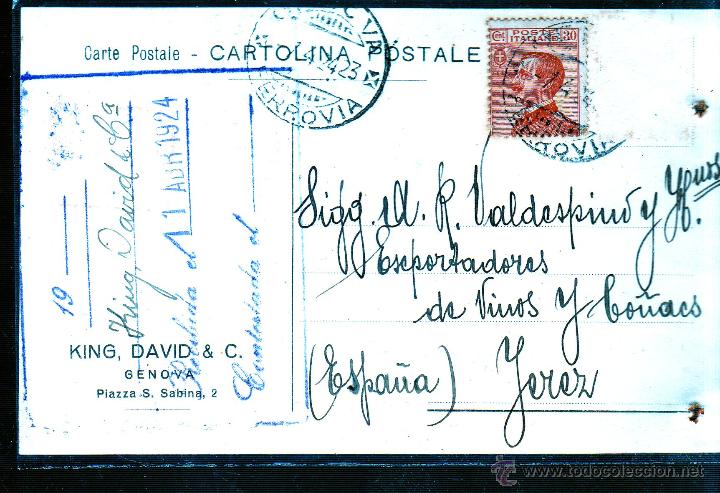 Carte Postale - CARTOLINA POSTALE
FERROVIA
POSTE
ITALIANE
Cmi 30
FERROVIA
19
King, David & Cª
Recibida el 11 ABR 1924
Contestada el
KING, DAVID & C.
GENOVA
Piazza S. Sabina, 2
Sigg. A. R. Valdespino y Hnos
Esportadores
de Vinos y Coñacs
(España) Jerez
todocoleccion
www.todocoleccion.net